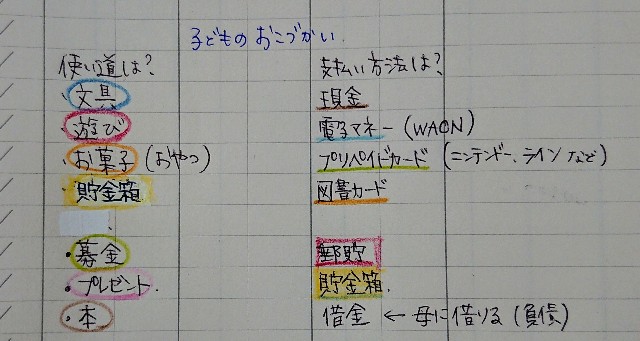 子どものおこづかい.
使い道は?
・文具
・遊び
・お菓子(おやつ)
・貯金箱
・募金
・プレゼント.
・本
支払い方法は?
現金
電子マネー(WAON)
プリペイドカード(ニンテンドー、ラインなど)
図書カード
郵貯
貯金箱.
借金 ← 母に借りる(負債)